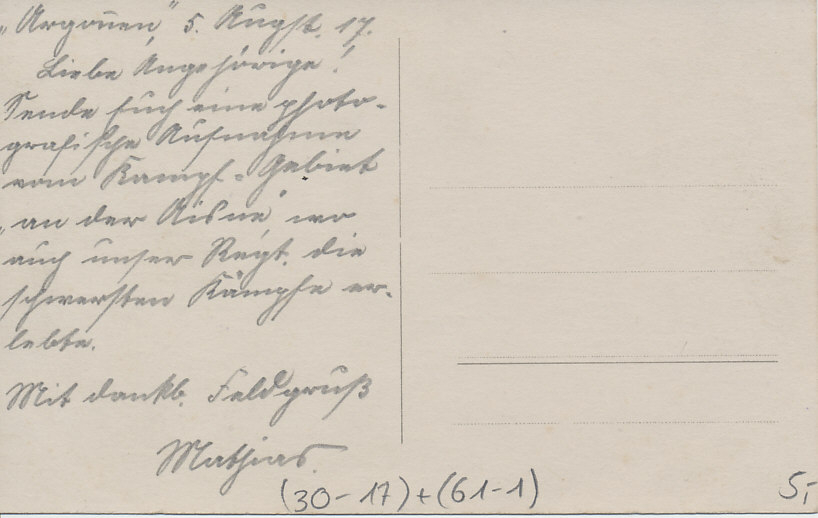 „Argonnen", 5. Augst. 17.
Liebe Angehörige!
Sende Euch eine photo-
grafische Aufnahme
vom Kampf-Gebiet
„an der Aisne" wo
auch unser Regt. die
schwersten Kämpfe er-
lebte.
Mit dankb. Feldgruß
Mathias.
(30-17)+(61-1)
5,-